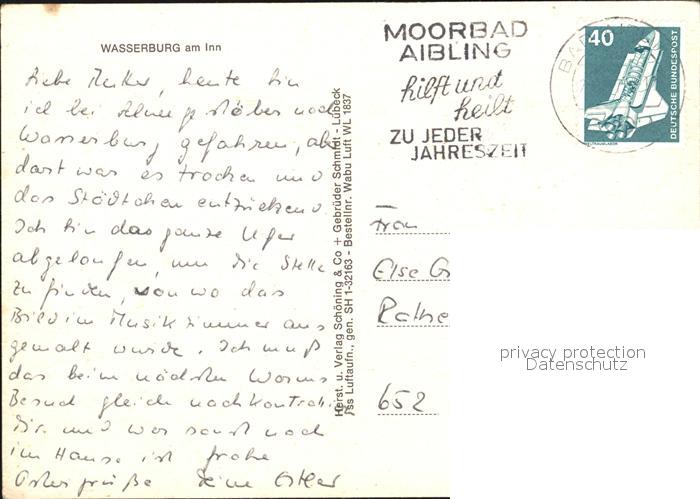 WASSERBURG am Inn
Liebe Mutter, heute bin
ich bei Schneegestöber nach
Wasserburg gefahren, aber
dort war es trocken und
das Städtchen entzückend.
Ich bin das ganze Ufer
abgelaufen, um die Stelle
zu finden, von wo das
Bild im Musikzimmer aus
gemalt wurde. Ich muß
das beim nächsten Worms
Besuch gleich nachkontroll.
Dir und was sonst noch
im Hause ist frohe
Ostergrüße Deine Esther
Herst. u. Verlag Schöning & Co + Gebrüder Schmidt - Lübeck
Luftaufn., gen. SH 1-32163 - Bestellnr. Wabu Luft WL 1837
MOORBAD
AIBLING
hilft und
heilt
ZU JEDER
JAHRESZEIT
BAD
40
DEUTSCHE BUNDESPOST
WELTRAUMLABOR
Frau
Else
Rathe
652
privacy protection
Datenschutz